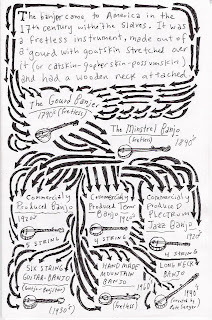 The banjo came to America in the
17th century with the slaves. It was
a fretless instrument, made out of
a gourd with goatskin stretched over
it (or catskin-gopherskin-possumskin)
and had a wooden neck attached
The Gourd Banjo
1840s (fretless)
The Minstrel Banjo
(fretless)
1840s
Commercially
Produced Banjo
1920s
5 STRING
Commercially
Produced Tenor
Banjo
1920s
4 STRING
Commercially
Produced
PLECTRUM
Jazz Banjo
4 STRING
SIX STRING
GUITAR-BANJO
(1930s)
HAND MADE
MOUNTAIN
BANJO
(fretless)
LONG NECK
BANJO
Invented by
Pete Seeger